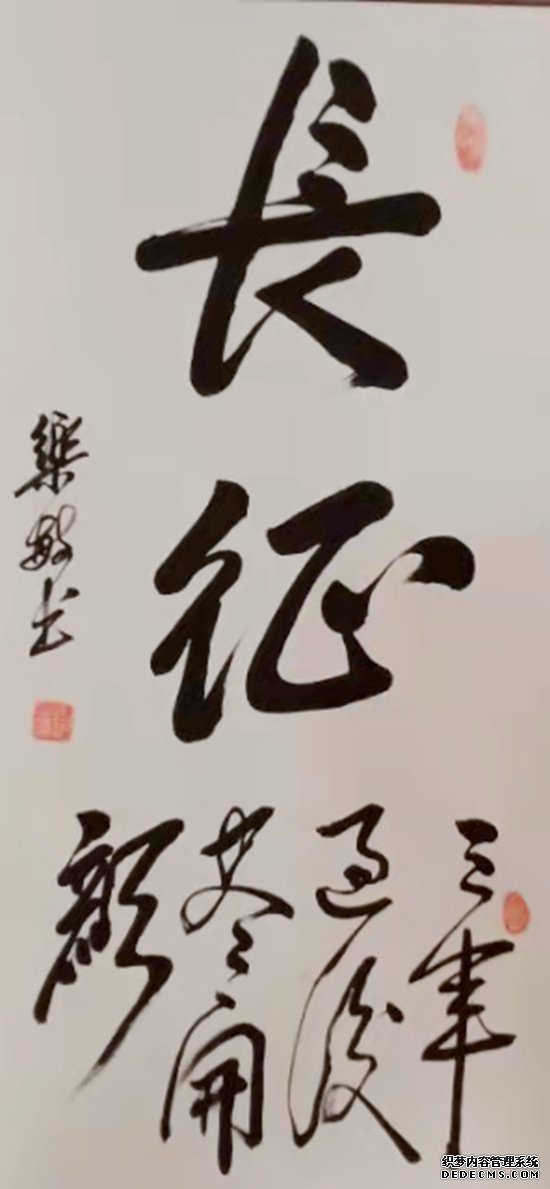 長征
三軍
過後
盡開
顏
樂敏书
织梦内容管理系统
DEDECMS.COM